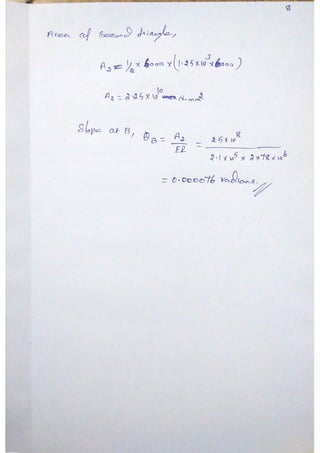 8
Area of second triangle,
A₂ = 1/2 × 6000 × (1.25×10³×6000)
A₂ = 2.25×10¹⁰ N.mm²
Slope at B, θB = A₂/EI = 2.5×10⁸ / 2.1×10⁵ × 2×78×10⁶
= 0.000076 radians.